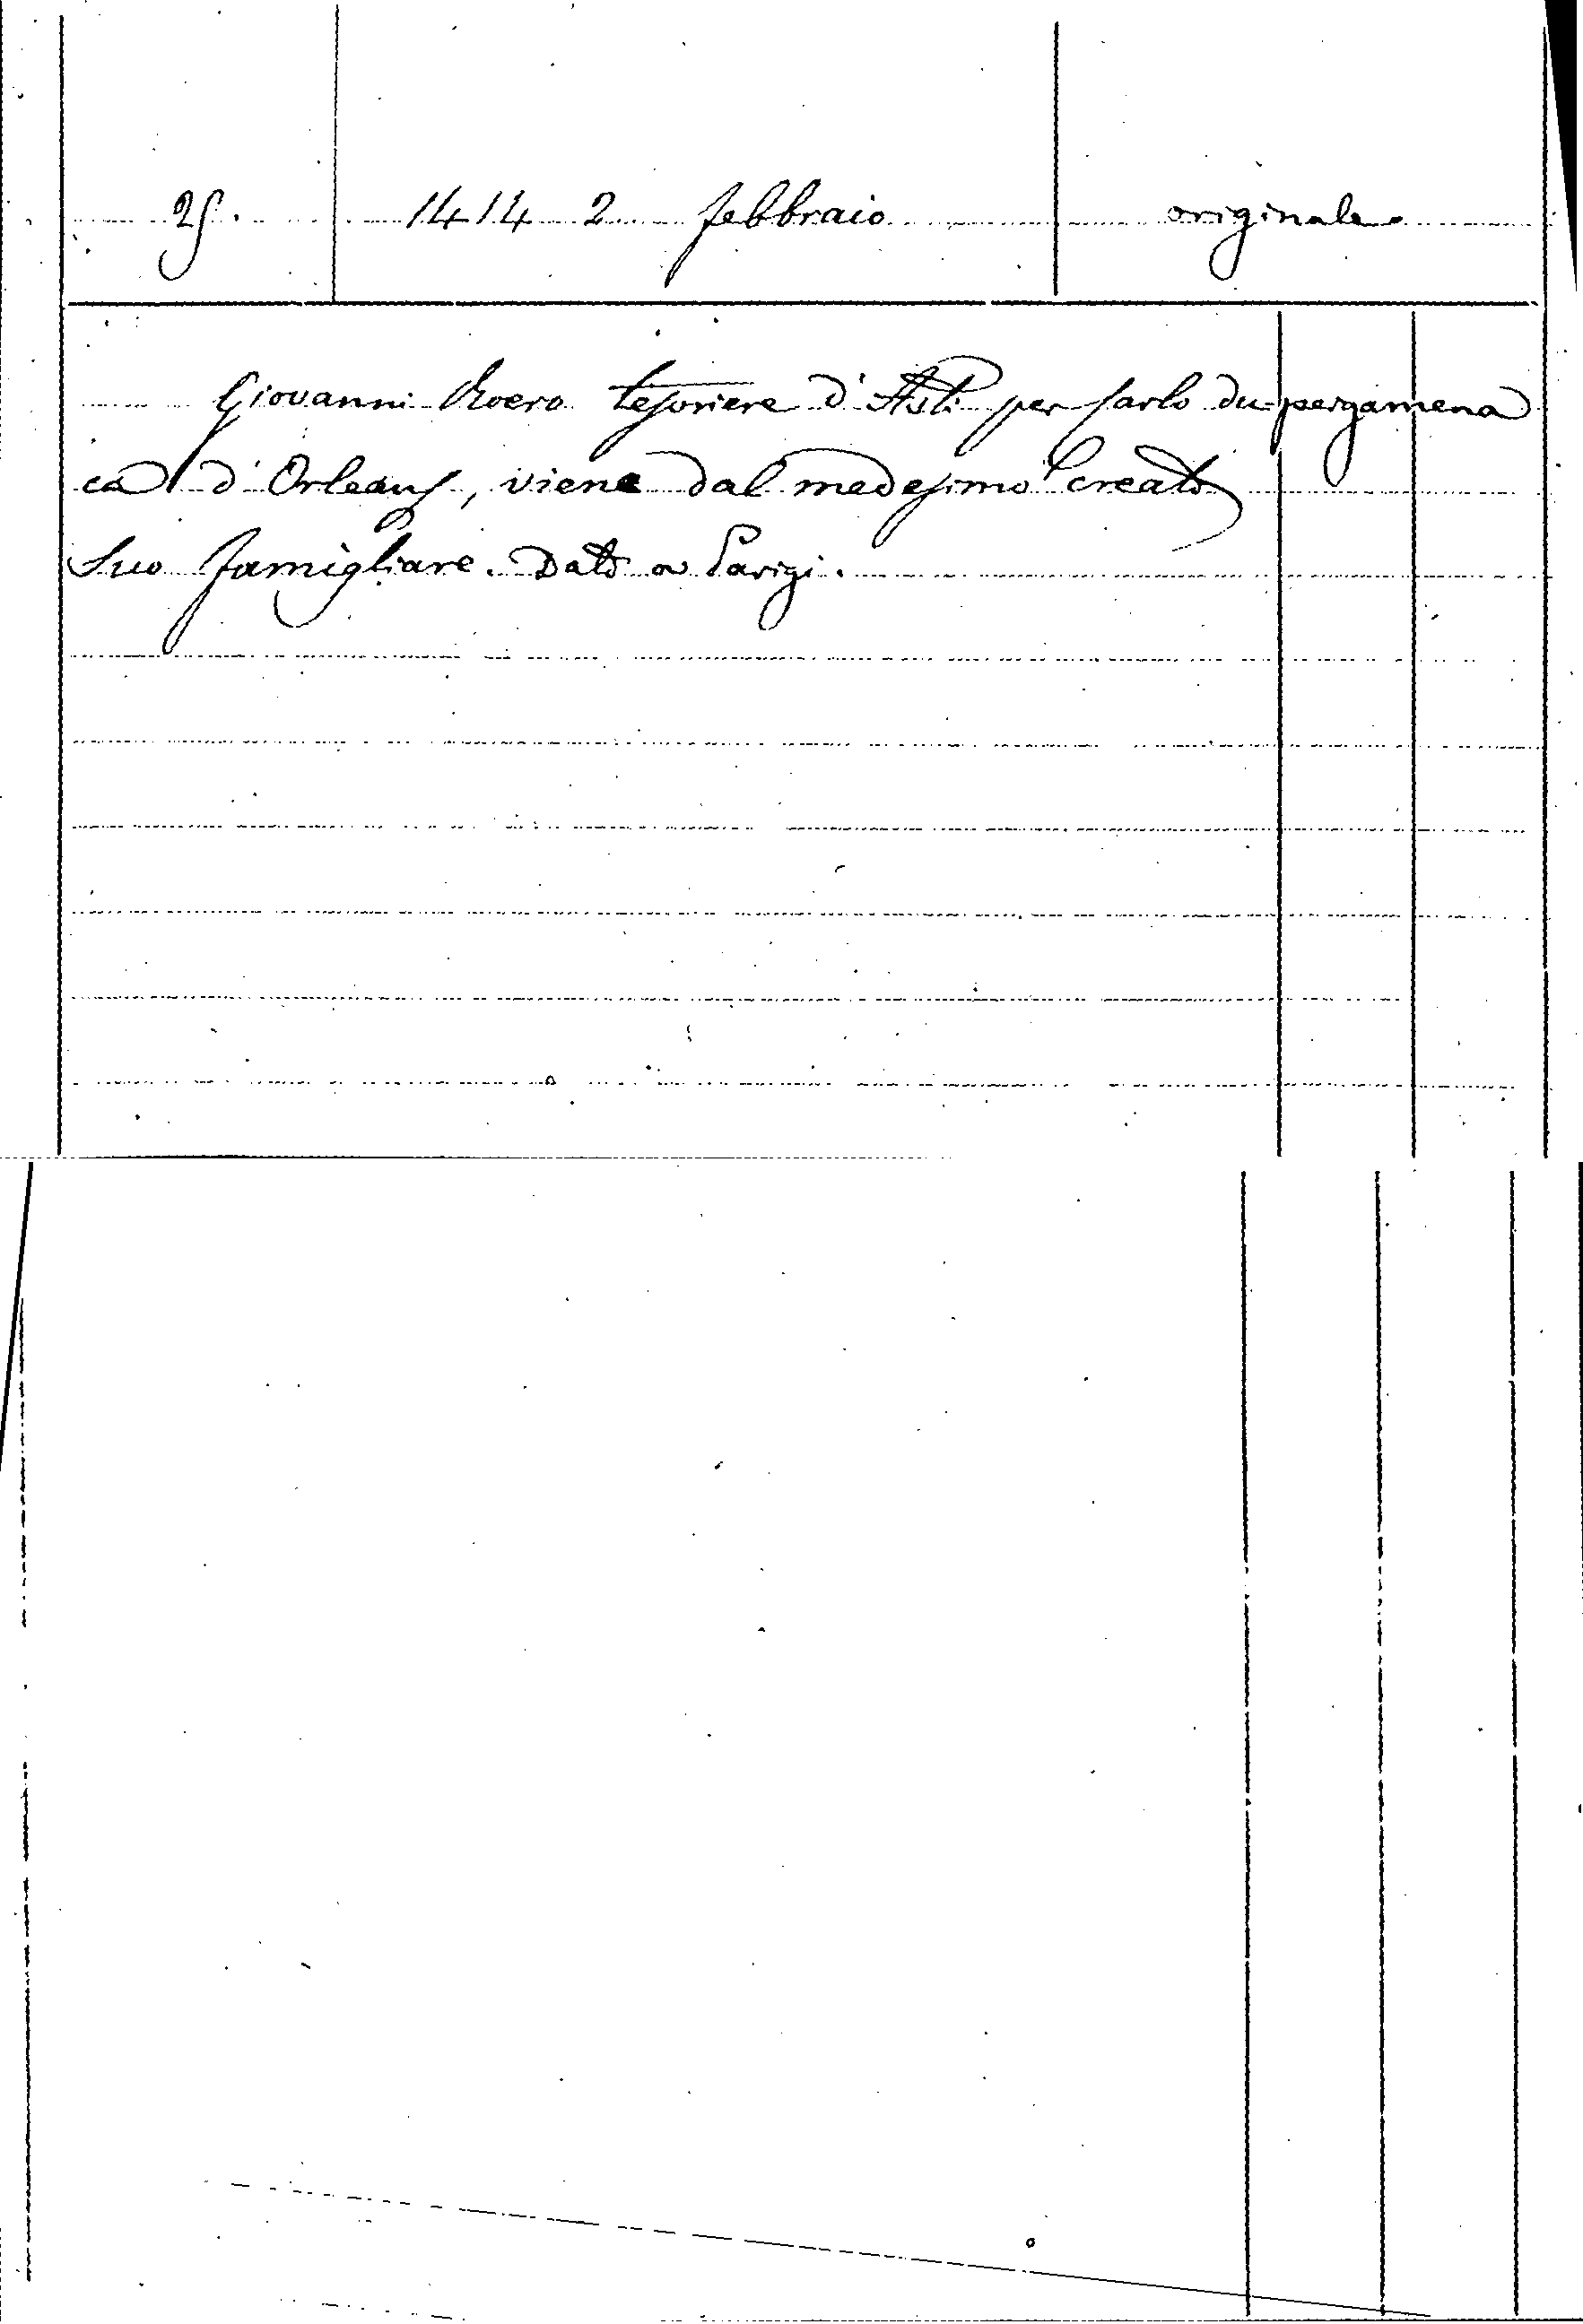 25. 1414 2 febbraio originale
Giovanni Roero tesoriere d'Asti per Carlo du- pergamena
ca d'Orleans, viene dal medesimo creato
suo famigliare. Dato a Parigi.